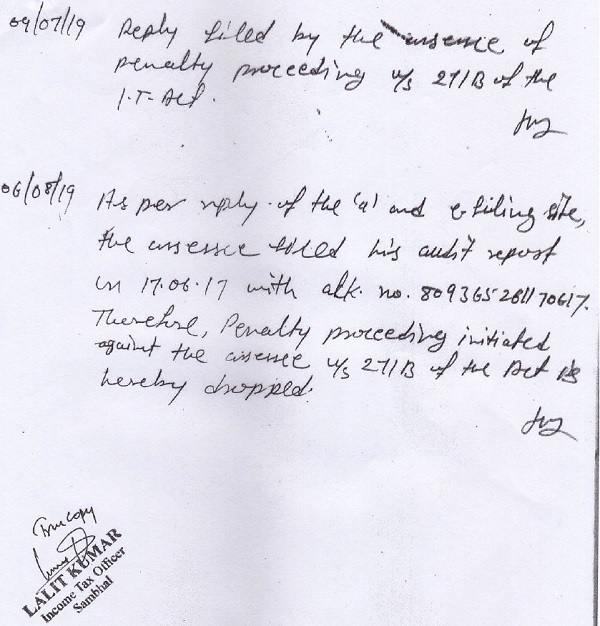 09/07/19 Reply filed by the assessee of
penalty proceeding u/s 271B of the
I.T. Act.
06/08/19 As per reply of the 'a' and e filing site,
the assessee filed his audit report
on 17.06.17 with alk. no. 809365281170617.
Therefore, Penalty proceeding initiated
against the assessee u/s 271B of the Act is
hereby dropped.
True copy
LALIT KUMAR
Income Tax Officer
Sambhal